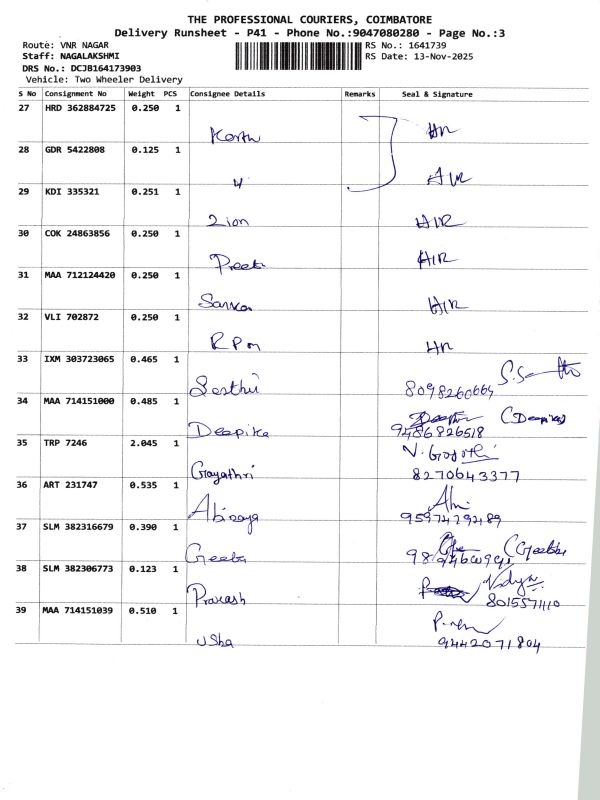 THE PROFESSIONAL COURIERS, COIMBATORE
Delivery Runsheet - P41 - Phone No.:9047080280 - Page No.:3
Route: VNR NAGAR RS No.: 1641739
Staff: NAGALAKSHMI RS Date: 13-Nov-2025
DRS No.: DCJB164173903
Vehicle: Two Wheeler Delivery
S No Consignment No Weight PCS Consignee Details Remarks Seal & Signature
27 HRD 362884725 0.250 1
28 GDR 5422808 0.125 1
29 KDI 335321 0.251 1
Zion HIR
30 COK 24863856 0.250 1
HIR
31 MAA 712124420 0.250 1
HIR
32 VLI 702872 0.250 1
RPM
33 IXM 303723065 0.465 1
8098260664
34 MAA 714151000 0.485 1
Deepika (Deepika)
9486826518
35 TRP 7246 2.045 1
Gayathri 8270643377
36 ART 231747 0.535 1
Abinaya
37 SLM 382316679 0.390 1
Geetha
38 SLM 382306773 0.123 1
Prakash Vidya
8015571110
39 MAA 714151039 0.510 1
Usha 9442071804